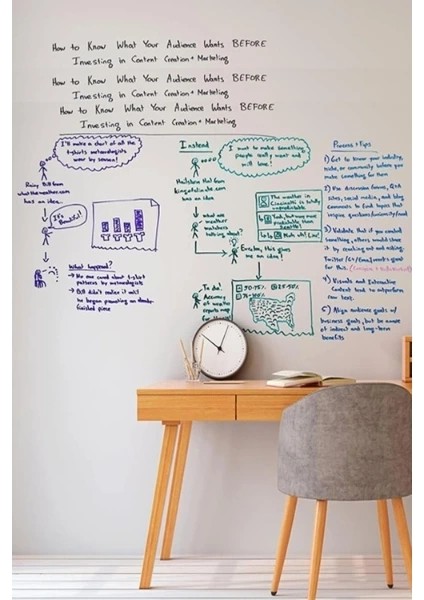 How to Know What Your Audience Wants BEFORE
Investing in Content Creation + Marketing
How to Know What Your Audience Wants BEFORE
Investing in Content Creation + Marketing
How to Know What Your Audience Wants BEFORE
Investing in Content Creation + Marketing
I'll make a chart of all the
t-shirts meteorologists
wear by season!
Rainy Bill from
whattheweather.com
has an idea...
It's
Beautiful!
What happened?
→ No one cared about t-shirt
patterns by meteorologists
→ Bill didn't realize it until
he began promoting
finished piece
Instead
I want to make something
people really want and
will love!
Hailstorm Hal from
has an idea...
what are
weather
watchers
talking about?
The weather in
Cincinnati is totally
unpredictable
Yeah, but way more
predictable than
Seattle!
Nuh uh! Liar!
Eureka, this gives
me an idea!
To do:
Accuracy
of weather
reports map
50-75%
25-50%
76-100%
Process + Tips
1) Get to know your industry,
niche, or community before you
make something for them
2) Use discussion forums, Q&A
sites, social media, and blog
comments to find topics that
inspire questions/curiosity/need
3) Validate that if you created
something, others would share
it by reaching out and asking.
Twitter/G+/Email works great
for this.
4) Visuals and Interactive
Content tend to outperform
raw text.
5) Align audience goals w/
business goals, but be aware
of indirect and long-term
benefits